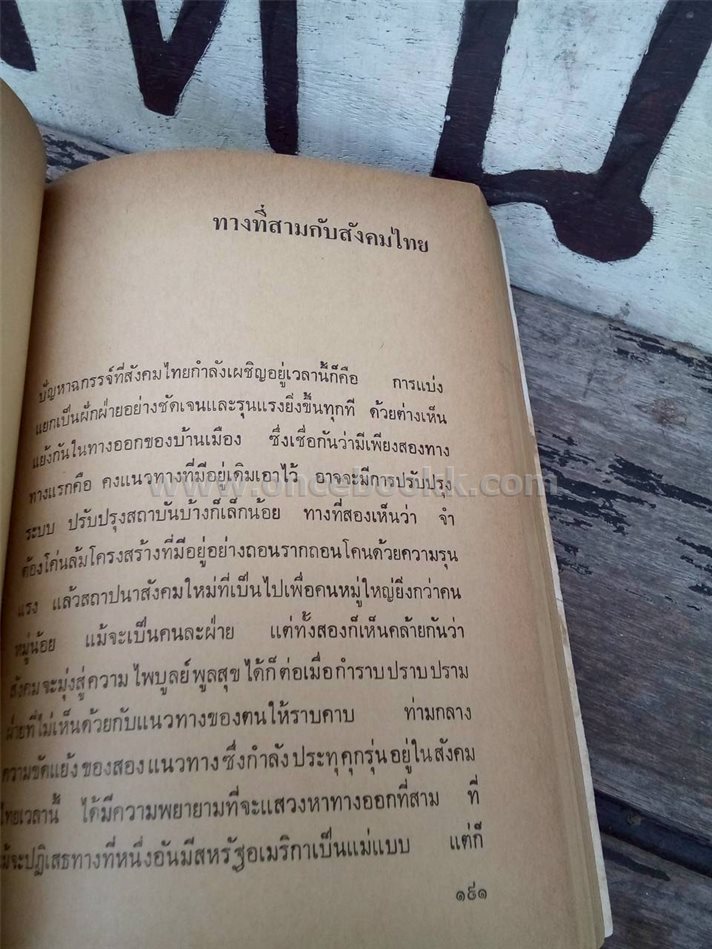 ทางที่สามกับสังคมไทย
ปัญหาฉกรรจ์ที่สังคมไทยกำลังเผชิญอยู่เวลานี้ก็คือ การแบ่ง
แยกเป็นฝักฝ่ายอย่างชัดเจนและรุนแรงยิ่งขึ้นทุกที ด้วยต่างเห็น
แย้งกันในทางออกของบ้านเมือง ซึ่งเชื่อกันว่ามีเพียงสองทาง
ทางแรกคือ คงแนวทางที่มีอยู่เดิมเอาไว้ อาจจะมีการปรับปรุง
www.oncebookk.com
ระบบ ปรับปรุงสถาบันบ้างก็เล็กน้อย ทางที่สองเห็นว่า จำ
ต้องโค่นล้มโครงสร้างที่มีอยู่อย่างถอนรากถอนโคนด้วยความรุน
แรง แล้วสถาปนาสังคมใหม่ที่เป็นไปเพื่อคนหมู่ใหญ่ยิ่งกว่าคน
หมู่น้อย แม้จะเป็นคนละฝ่าย แต่ทั้งสองก็เห็นคล้ายกันว่า
สังคมจะมุ่งสู่ความไพบูลย์พูลสุขได้ก็ต่อเมื่อกำราบปราบปราม
ฝ่ายที่ไม่เห็นด้วยกับแนวทางของตนให้ราบคาบ ท่ามกลาง
ความขัดแย้งของสองแนวทางซึ่งกำลังประทุคุกรุ่นอยู่ในสังคม
ไทยเวลานี้ ได้มีความพยายามที่จะแสวงหาทางออกที่สาม ที่
แม้จะปฏิเสธทางที่หนึ่งอันมีสหรัฐอเมริกาเป็นแม่แบบ แต่ก็
๑๙๑